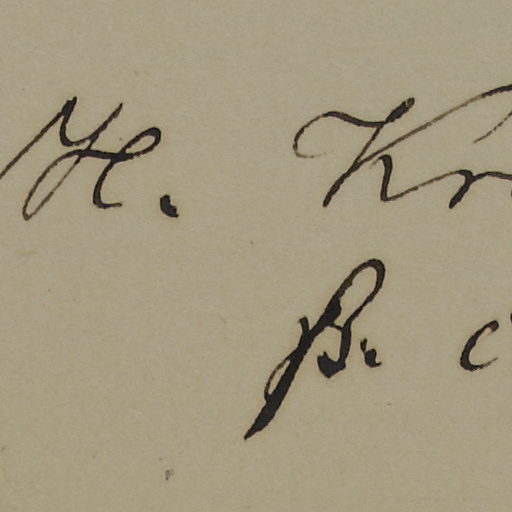 H. Kr
B. c